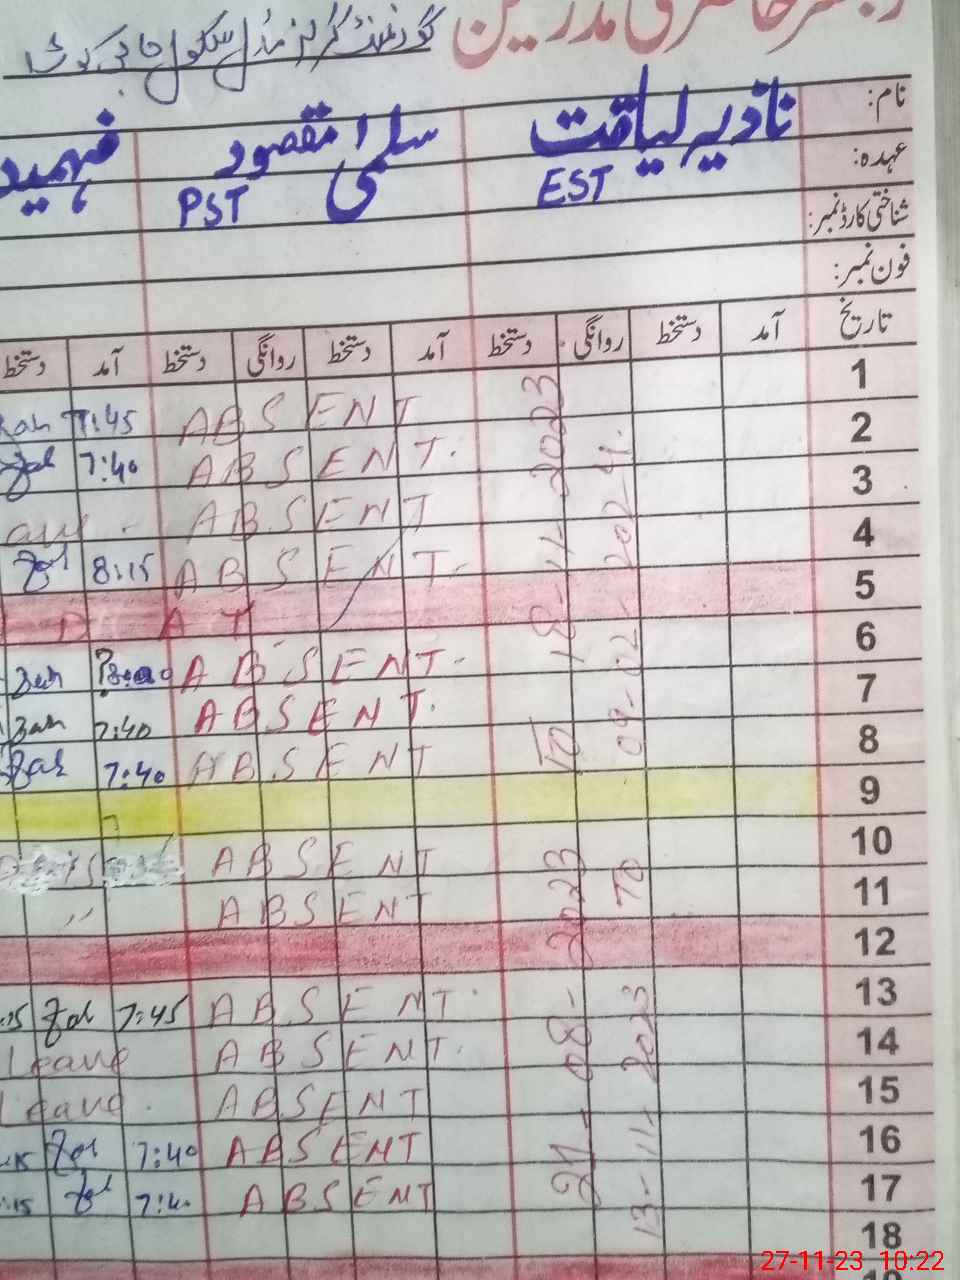 رجسٹر حاضری مدرسین
گورنمنٹ گرلز مڈل سکول
نام: نادیہ لیاقت سلمیٰ مقصود فہمید
عہدہ: EST PST
شناختی کارڈ نمبر:
فون نمبر:
تاریخ آمد دستخط روانگی دستخط آمد دستخط روانگی دستخط آمد دستخط
1 ABSENT 7:45
2 ABSENT. 7:40
3 ABSENT
4 ABSENT. 8:15
5
6 ABSENT.
7 ABSENT. 7:40
8 ABSENT 7:40
9
10 ABSENT
11 ABSENT
12
13 ABSENT. 7:45
14 ABSENT. Leave
15 ABSENT Leave.
16 ABSENT 7:40
17 ABSENT 7:40
18
21-08-2023 TO 18-11-2023
13-11-2023 TO 09-02-2024.
27-11-23 10:22